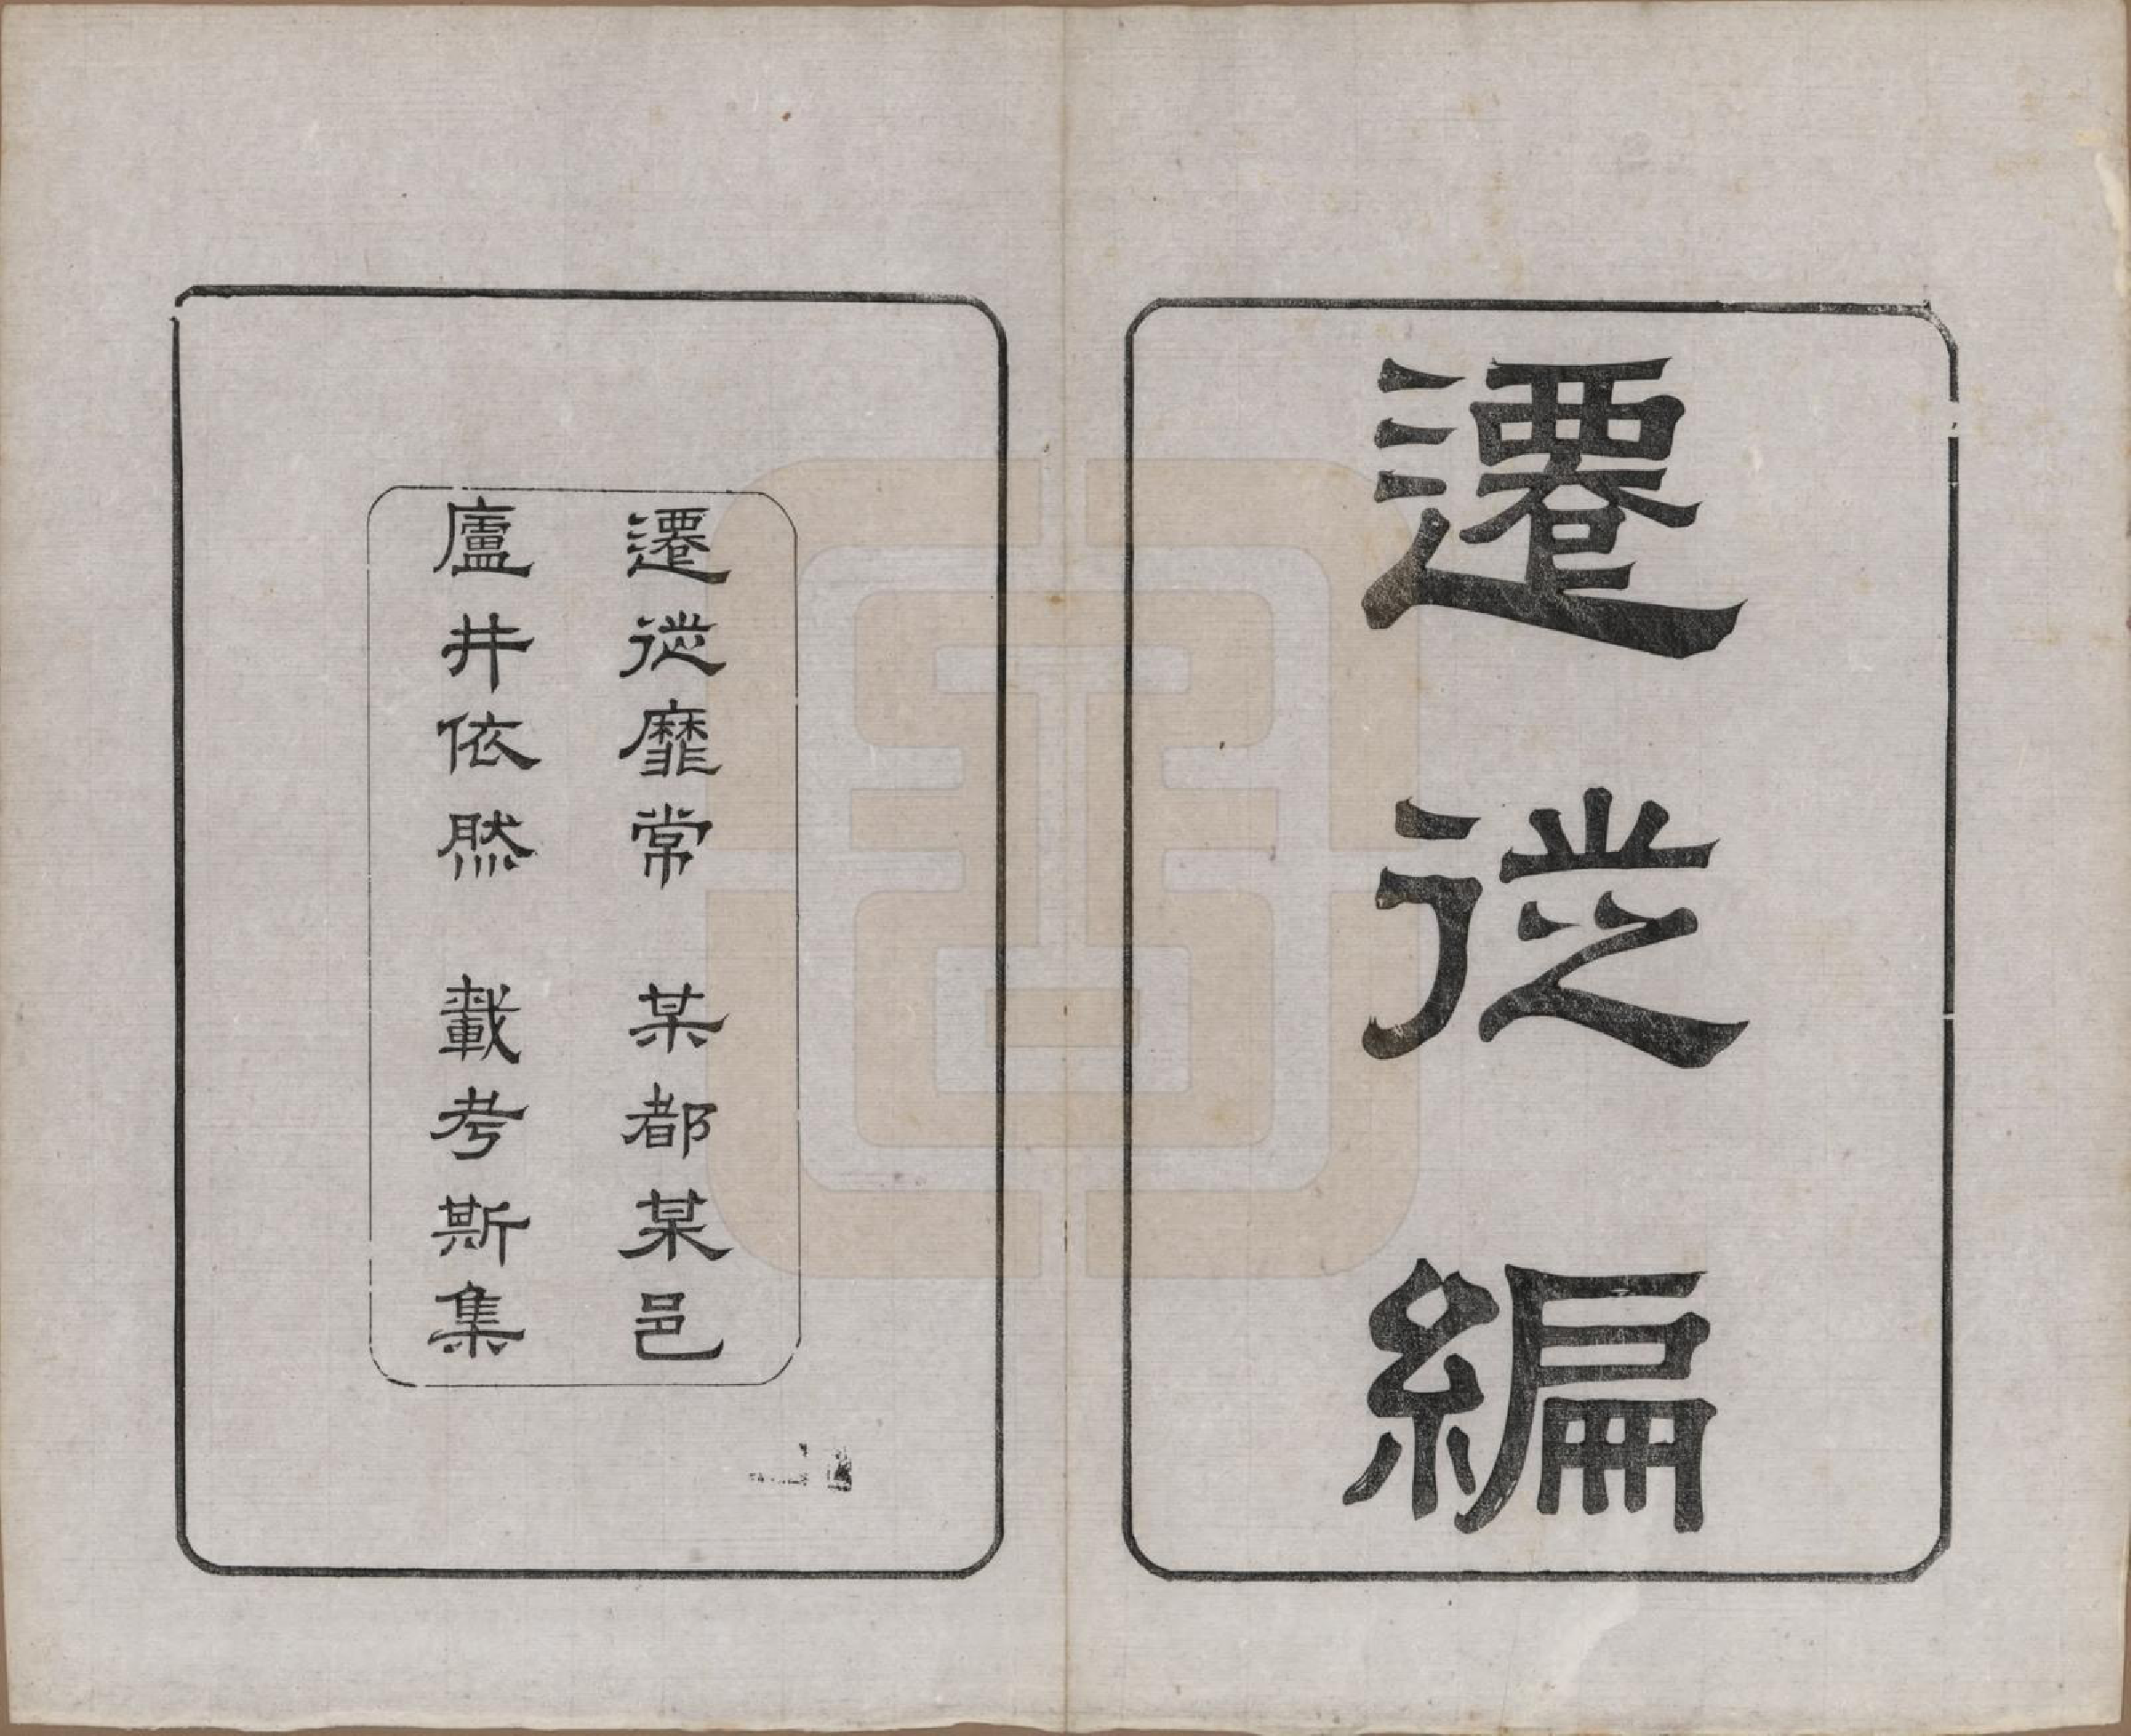 遷徙編
遷徙靡常　某都某邑
廬井依然　載考斯集